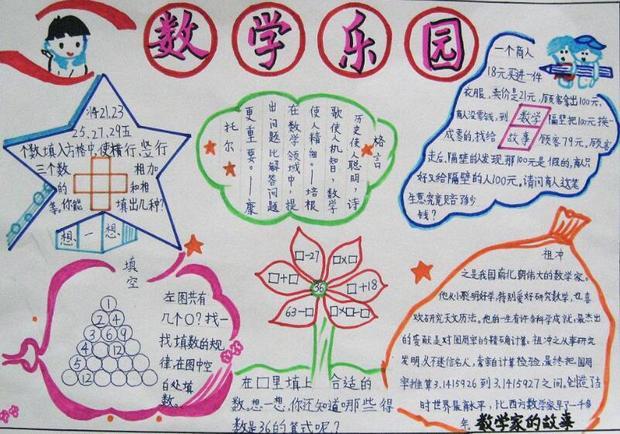 数学乐园
将21.23
25.27.29五
个数填入方格中,使横行.竖行
三个数
相加
的
和相
等.你能
填出几种?
想一想
格言
历史使人聪明,诗
歌使人机智,数学
使人精细。—培根
在数学领域中,提
出问题比解答问题
更重要。—康
托尔
一个商人
18元买进一件
衣服,卖价是21元,顾客拿出100元,
商人没零钱,到
隔壁把100元换
成零的,找给
顾客79元,顾客
走后,隔壁的发现那100元是假的,商人只
好又给隔壁的人100元。请问商人这笔
生意究竟是否
钱?
数学
故事
填空
①
②
③
④
⑥
⑨
④
⑫
左图共有
几个○?找一
找填数的规
律,在图中空
白处填
数。
36
□-27
□×□
□+18
□×□-□
63-□
□+□
在□里填上合适的
数.想一想,你还知道哪些得
数是36的算式呢?
祖冲
之是我国前化朝伟大的数学家。
他从小聪明好学,特别爱好研究数学,也喜
欢研究天文历法。他的一生有许多科学成就,最杰出
的贡献是对圆周率的精确计算。祖冲之从事研究
发明,又不迷信名人,靠亲自计算检验,最终把圆周
率推算3.1415926到3.1415927之间。创造了当
时世界最高水平,比西方数学家早了一千多
年.
数学家的故事